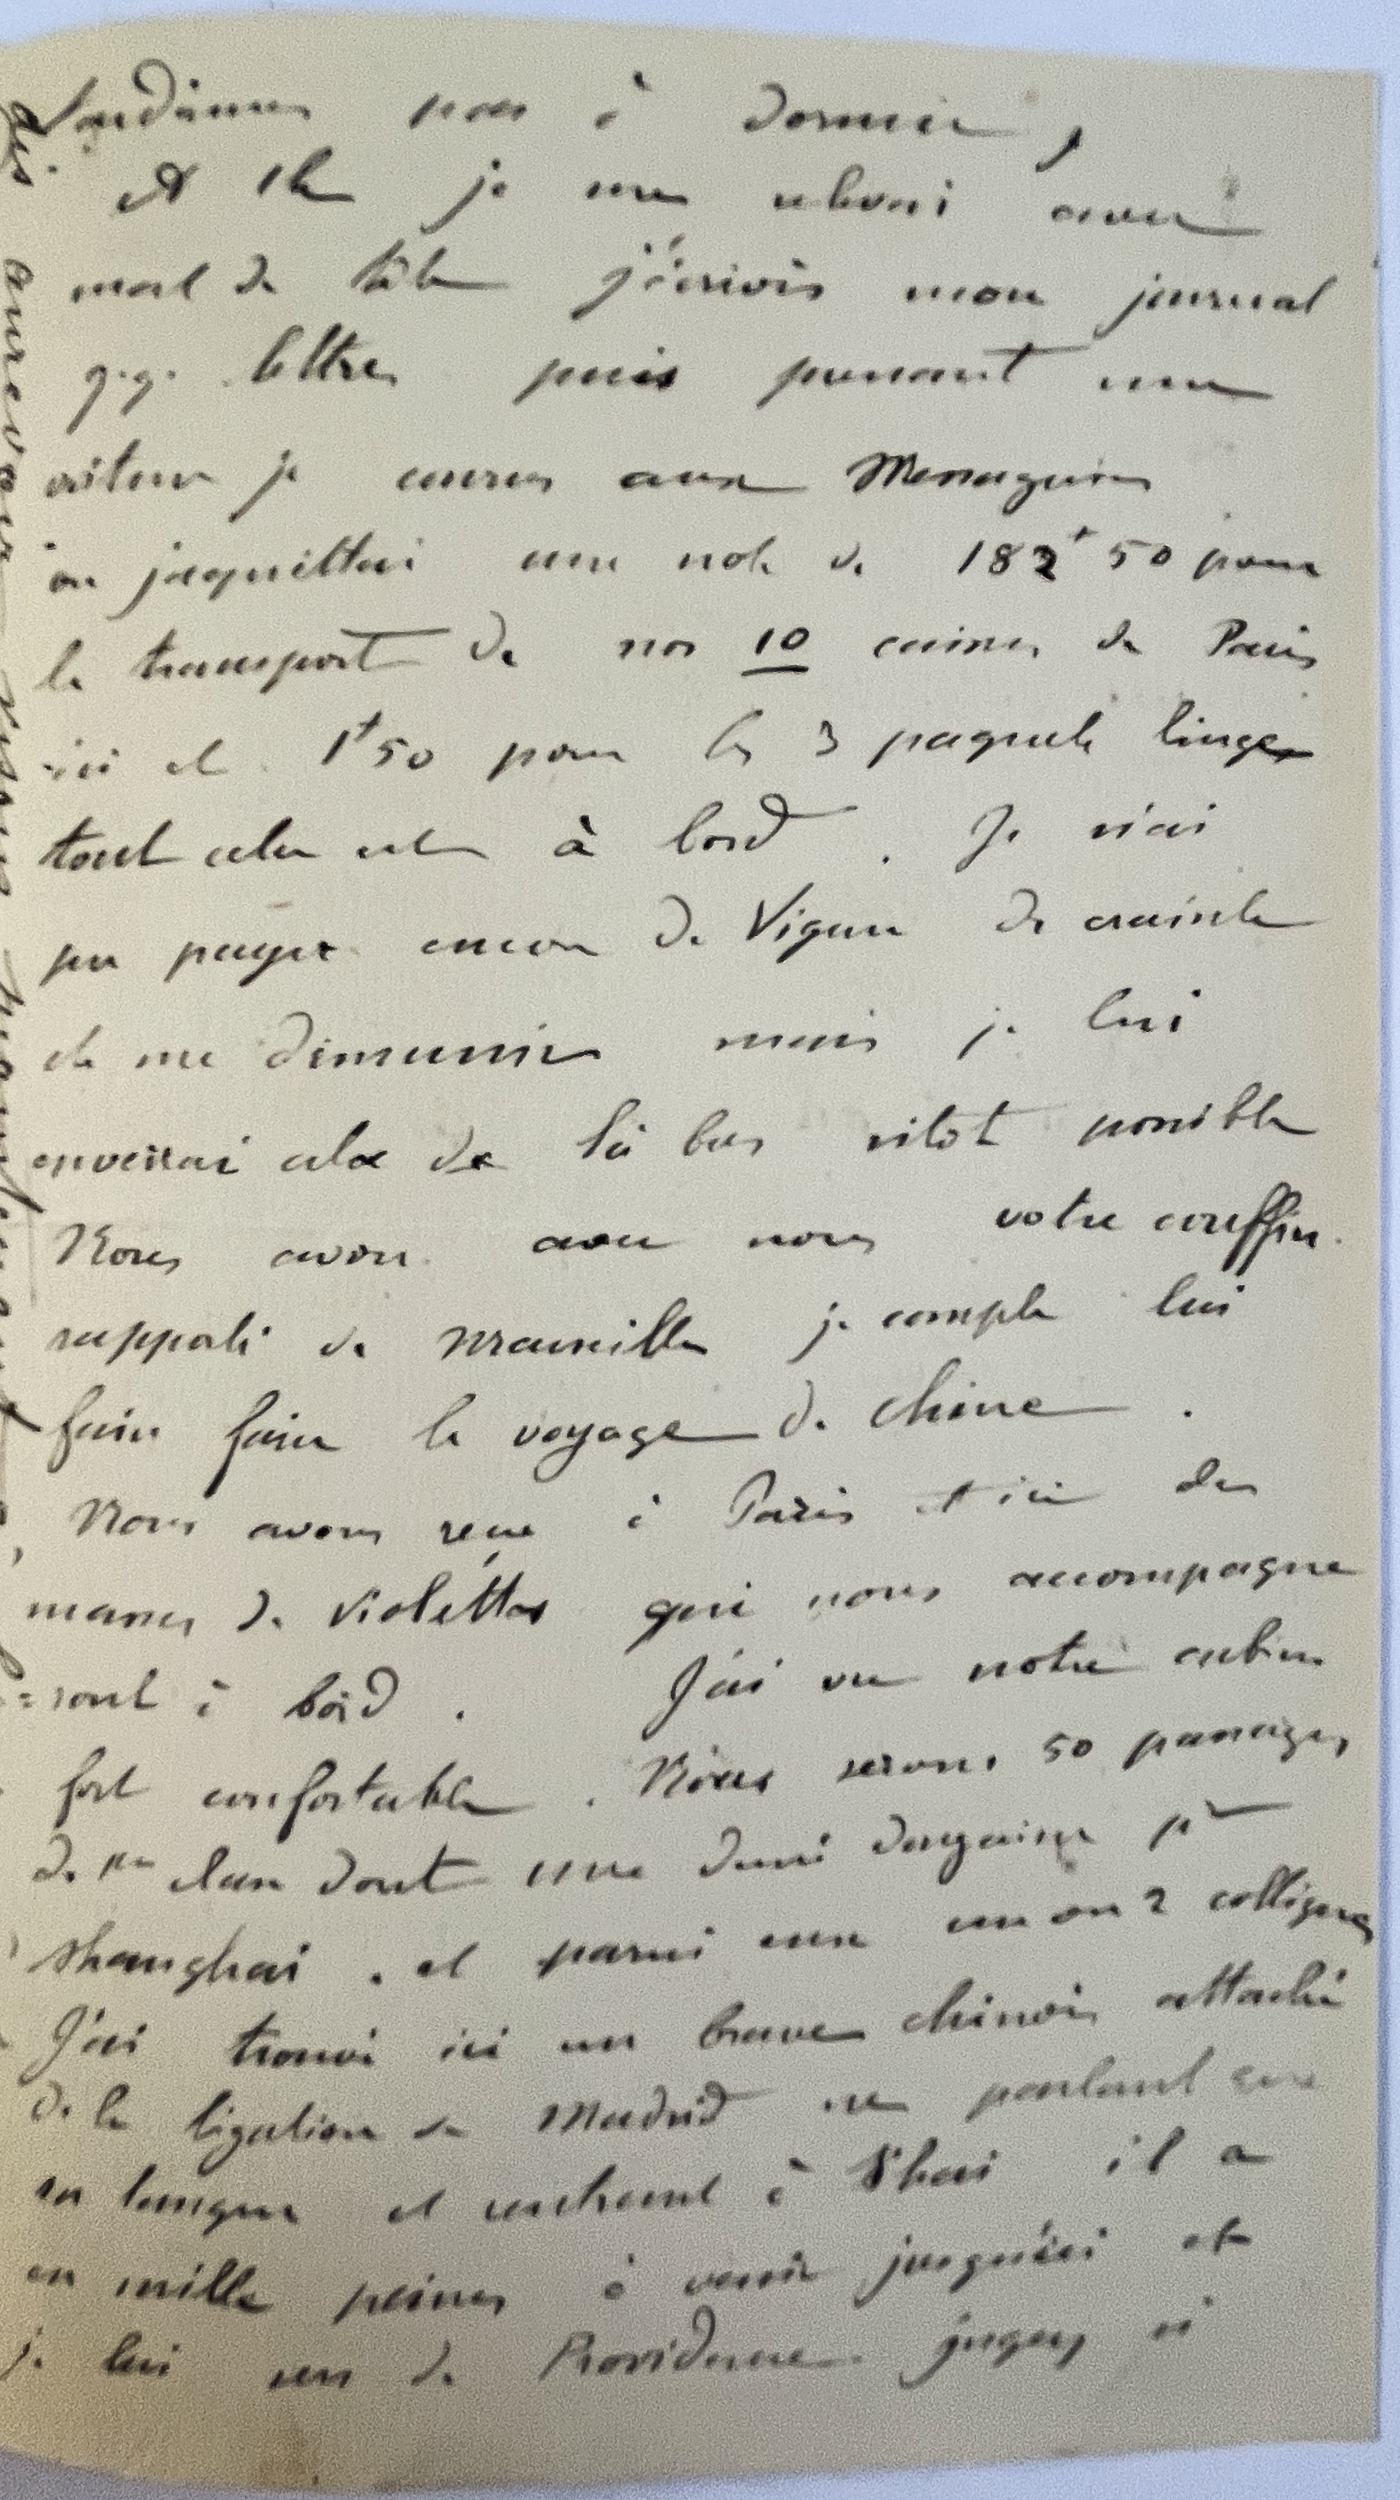 tardâmes pas à dormir,
A 1h je me relevai avec
mal de tête j'écrivis mon journal
q.q. lettres puis prenant une
voiture je courus aux Messageries
où j'acquittai une note de 182f 50 pour
le transport de nos 10 caisses de Paris
ici et 1f 50 pour les 3 paquets linges
tout cela est à bord. Je n'ai
pu payer encore de Vigan de crainte
de me dimunir mais je lui
enverrai cela de là bas sitôt possible
Nous avons avec nous votre couffin.
rapporté de Marseille je compte lui
faire faire le voyage de Chine.
Nous avons reçu à Paris et ici des
masses de violettes qui nous accompagne
sont à bord. J'ai vu notre cabine
fort confortable. Nous serons 50 passagers
de 1re classe dont une demi douzaine pr
Shanghai. et parmi eux un ou 2 collègues
J'ai trouvé ici un brave chinois attaché
de la légation de Madrid ne parlant que
sa langue et rentrant à S'hai il a
eu mille peines à venir jusqu'ici et
je lui sers de Providence jugez si